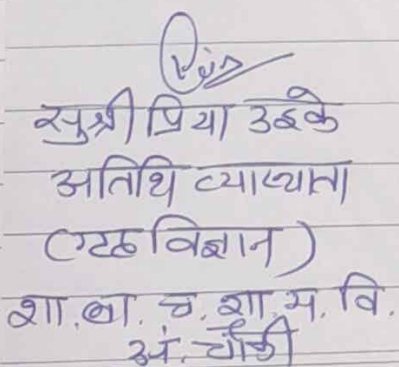 सुश्री प्रिया उइके
अतिथि व्याख्याता
(गृह विज्ञान)
शा. ला. च. शा. म. वि.
अं. चौकी